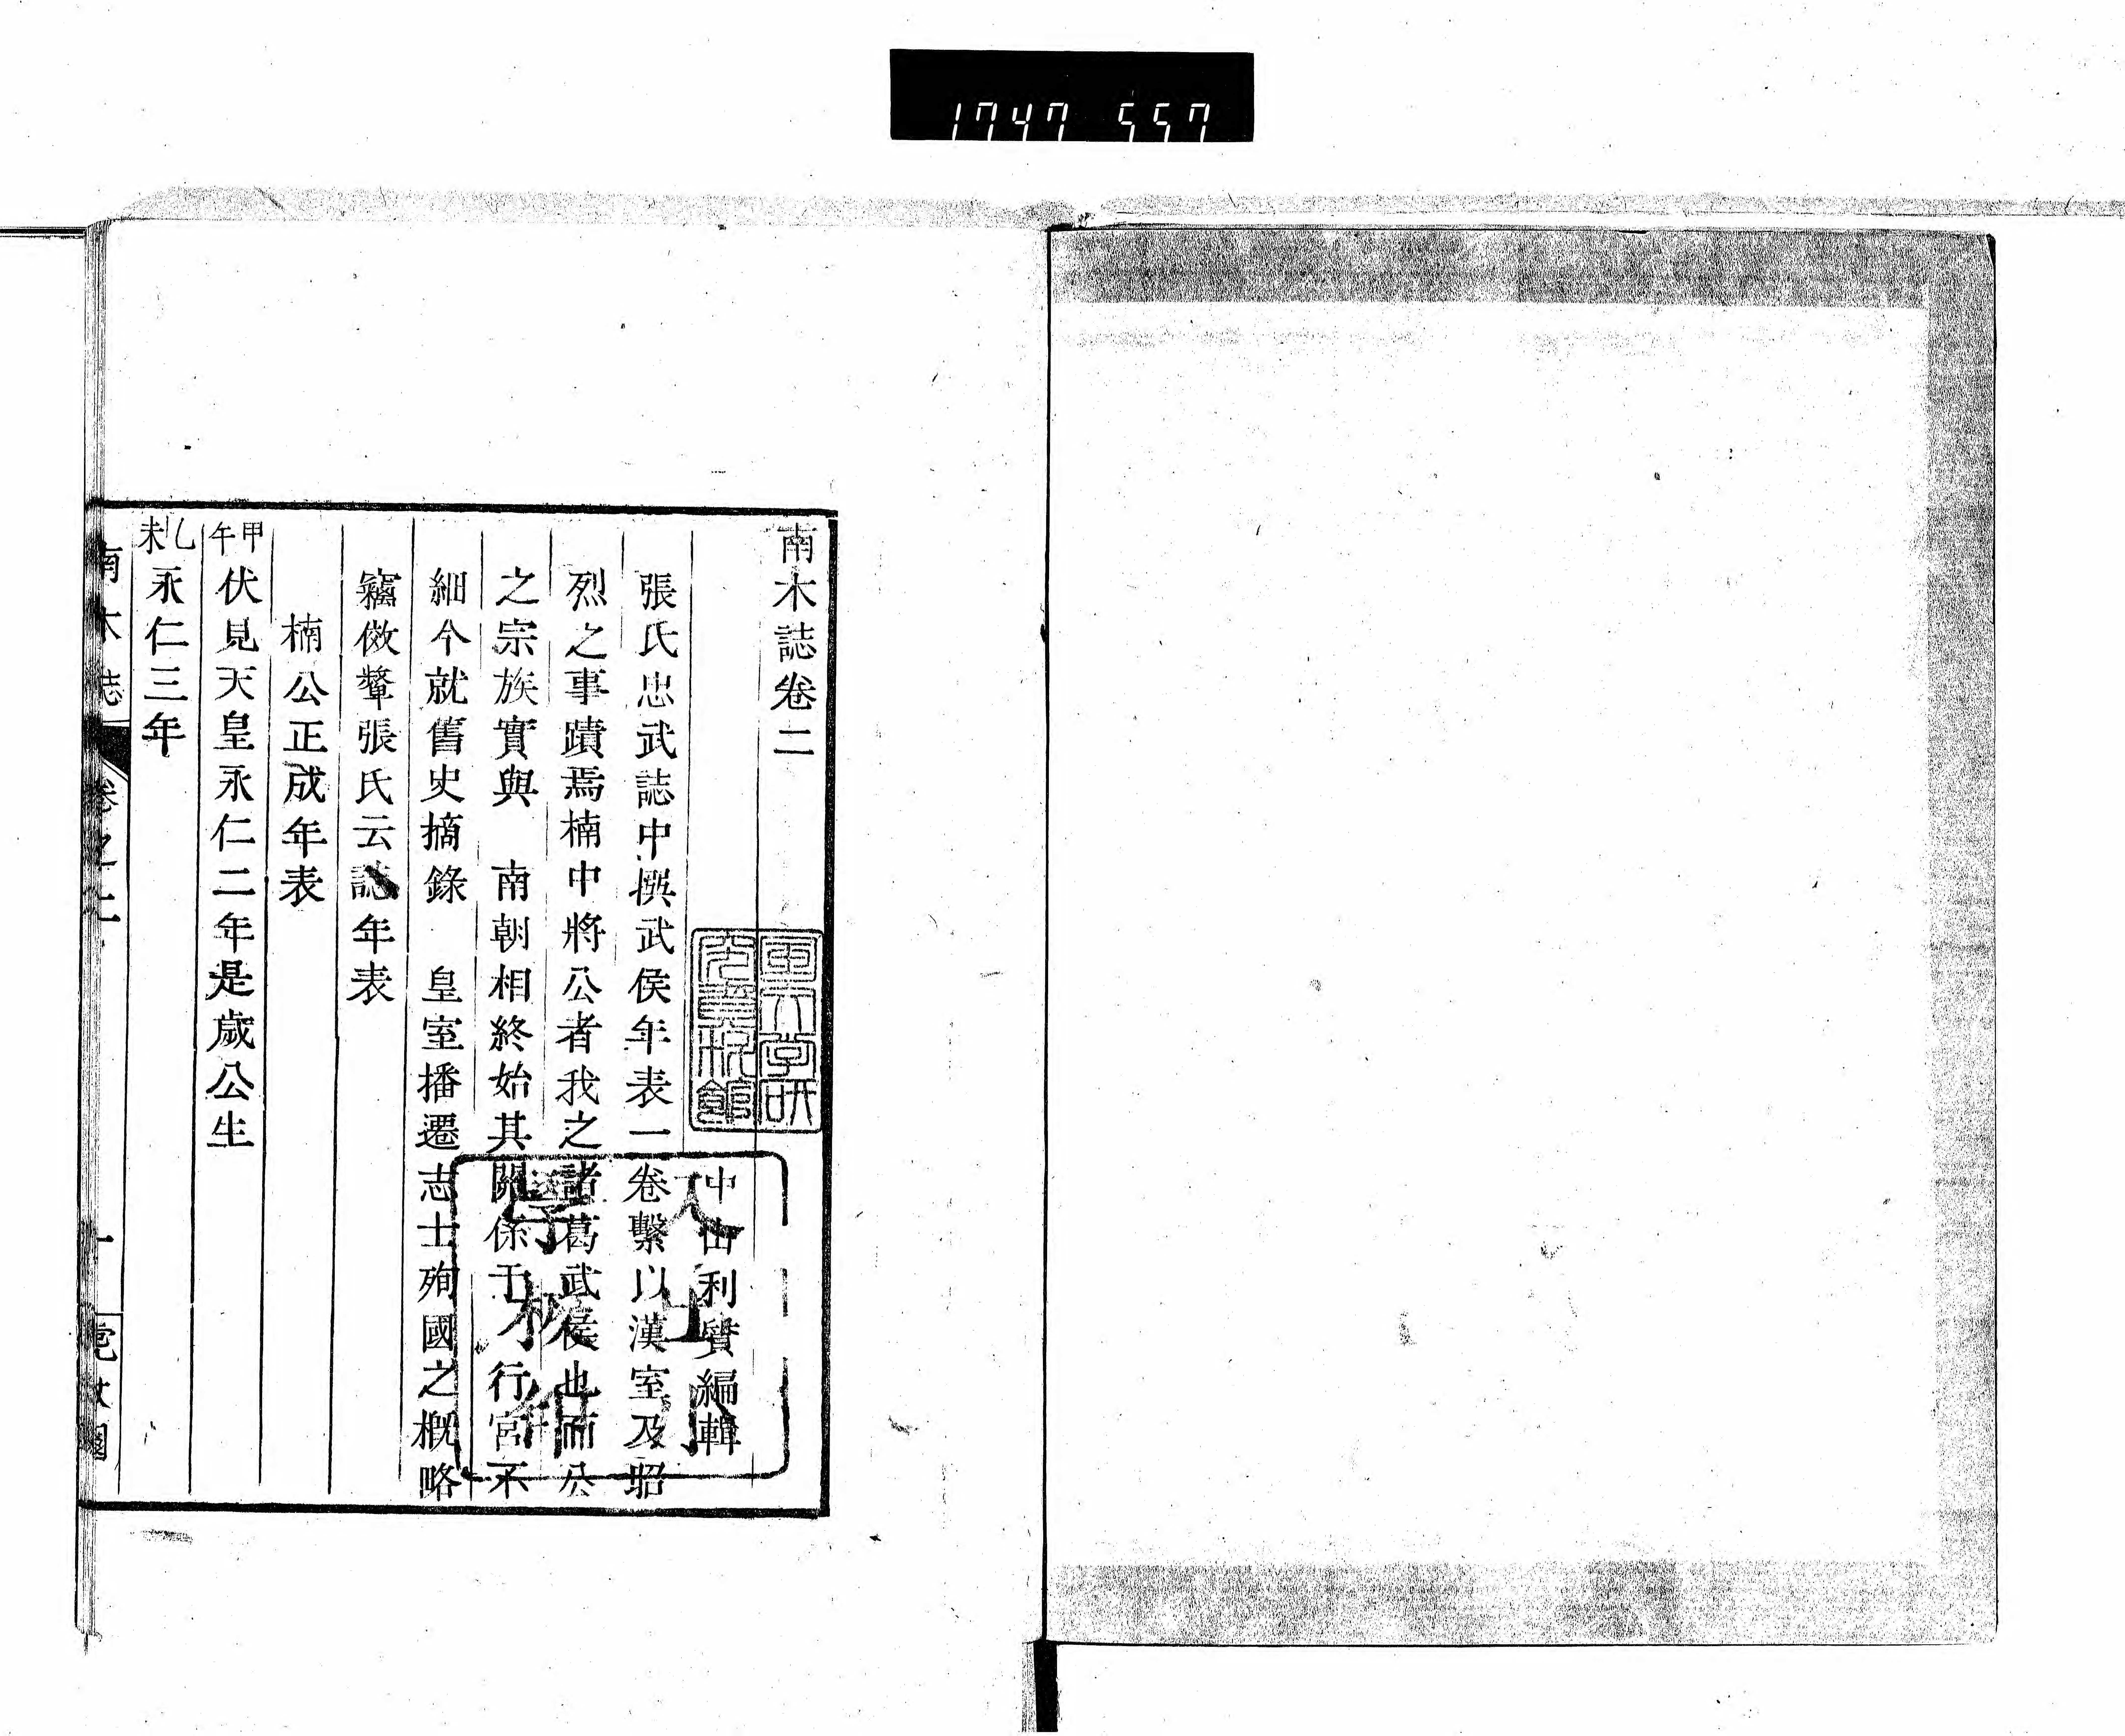 1747 557
南木誌卷二
中山利質編輯
張氏忠武誌中撰武侯年表一卷繫以漢室及昭
烈之事蹟焉楠中將公者我之諸葛武侯也而公
之宗族實與　南朝相終始其關係于　行宮不
細今就舊史摘錄　皇室播遷志士殉國之概略
竊傚顰張氏云誌年表
楠公正成年表
甲午伏見天皇永仁二年是歲公生
乙未永仁三年
南木誌　卷之二　一